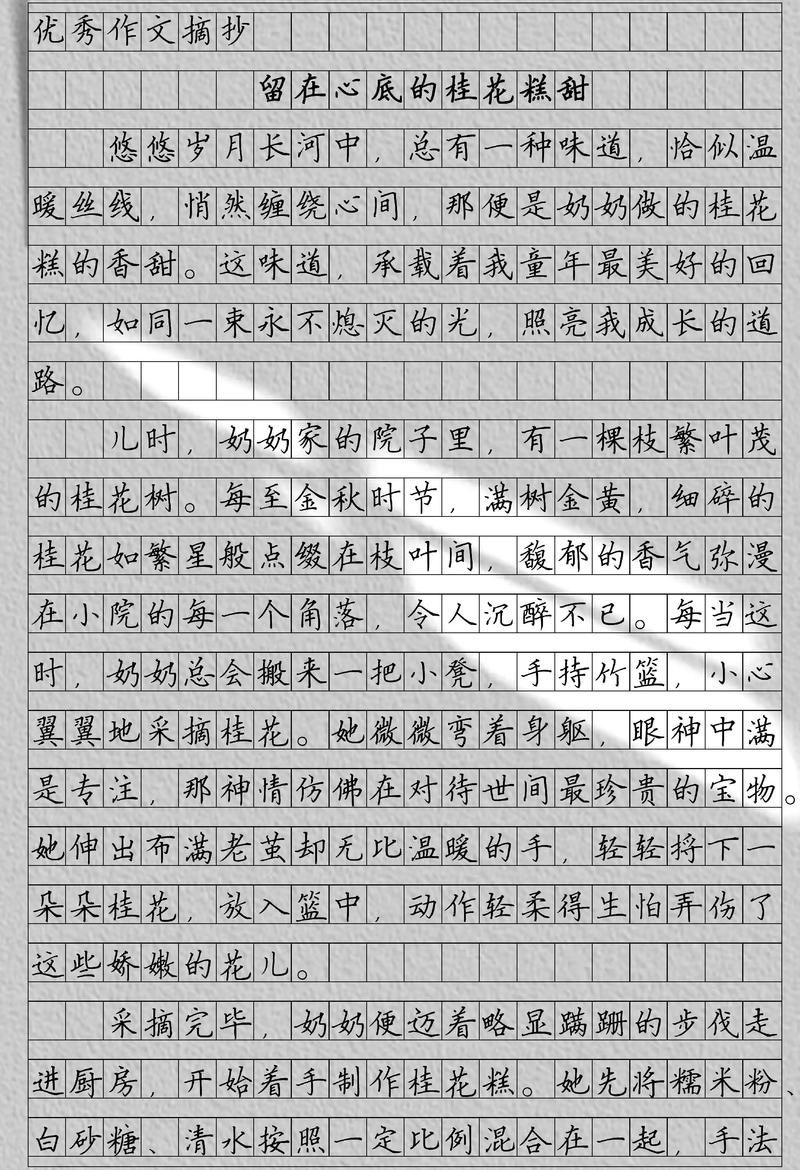 优秀作文摘抄
留在心底的桂花糕甜
悠悠岁月长河中，总有一种味道，恰似温
暖丝线，悄然缠绕心间，那便是奶奶做的桂花
糕的香甜。这味道，承载着我童年最美好的回
忆，如同一束永不熄灭的光，照亮我成长的道
路。
儿时，奶奶家的院子里，有一棵枝繁叶茂
的桂花树。每至金秋时节，满树金黄，细碎的
桂花如繁星般点缀在枝叶间，馥郁的香气弥漫
在小院的每一个角落，令人沉醉不已。每当这
时，奶奶总会搬来一把小凳，手持竹篮，小心
翼翼地采摘桂花。她微微弯着身躯，眼神中满
是专注，那神情仿佛在对待世间最珍贵的宝物。
她伸出布满老茧却无比温暖的手，轻轻捋下一
朵朵桂花，放入篮中，动作轻柔得生怕弄伤了
这些娇嫩的花儿。
采摘完毕，奶奶便迈着略显蹒跚的步伐走
进厨房，开始着手制作桂花糕。她先将糯米粉、
白砂糖、清水按照一定比例混合在一起，手法